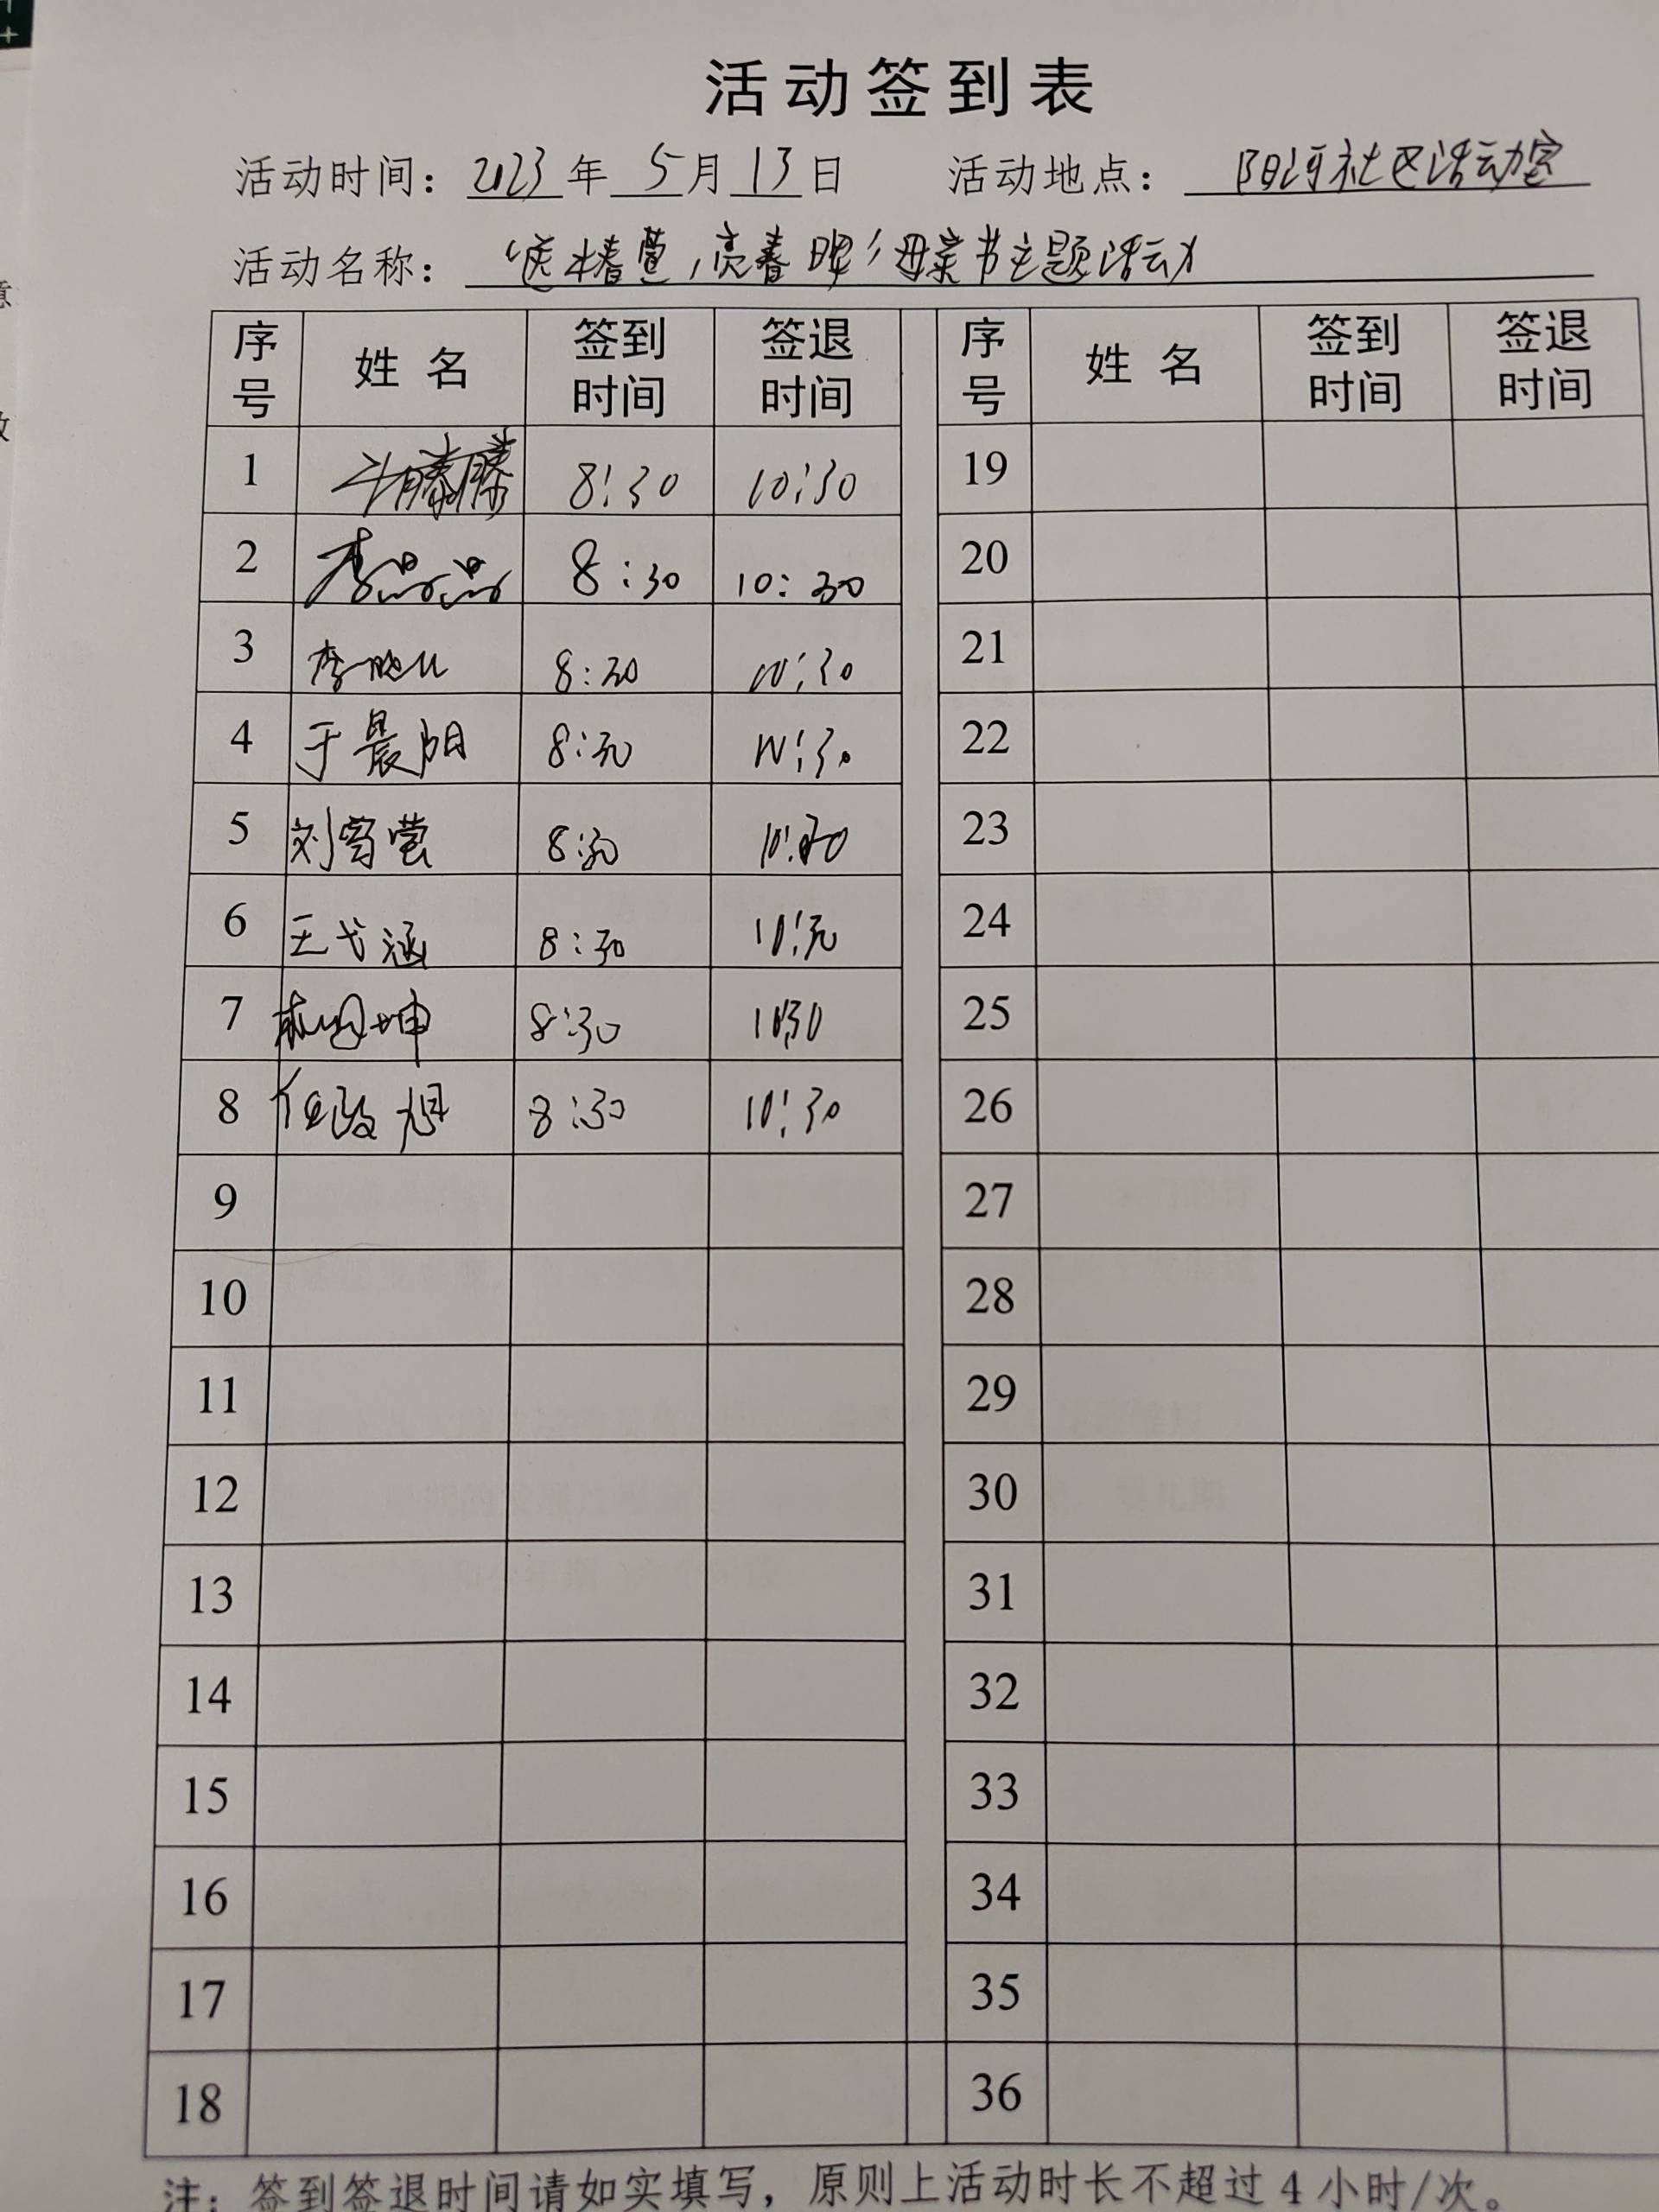 活动签到表
活动时间：2023年5月13日 活动地点：阳河社区活动室
活动名称：椿萱，亮春晖 母亲节主题活动
序号 姓名 签到时间 签退时间 序号 姓名 签到时间 签退时间
1 滕滕 8:30 10:30 19
2 李晶晶 8:30 10:30 20
3 李 8:30 10:30 21
4 于晨阳 8:30 10:30 22
5 刘雪莹 8:30 10:30 23
6 王弋涵 8:30 10:30 24
7 坤 8:30 10:30 25
8 任政旭 8:30 10:30 26
9 27
10 28
11 29
12 30
13 31
14 32
15 33
16 34
17 35
18 36
注：签到签退时间请如实填写，原则上活动时长不超过4小时/次。